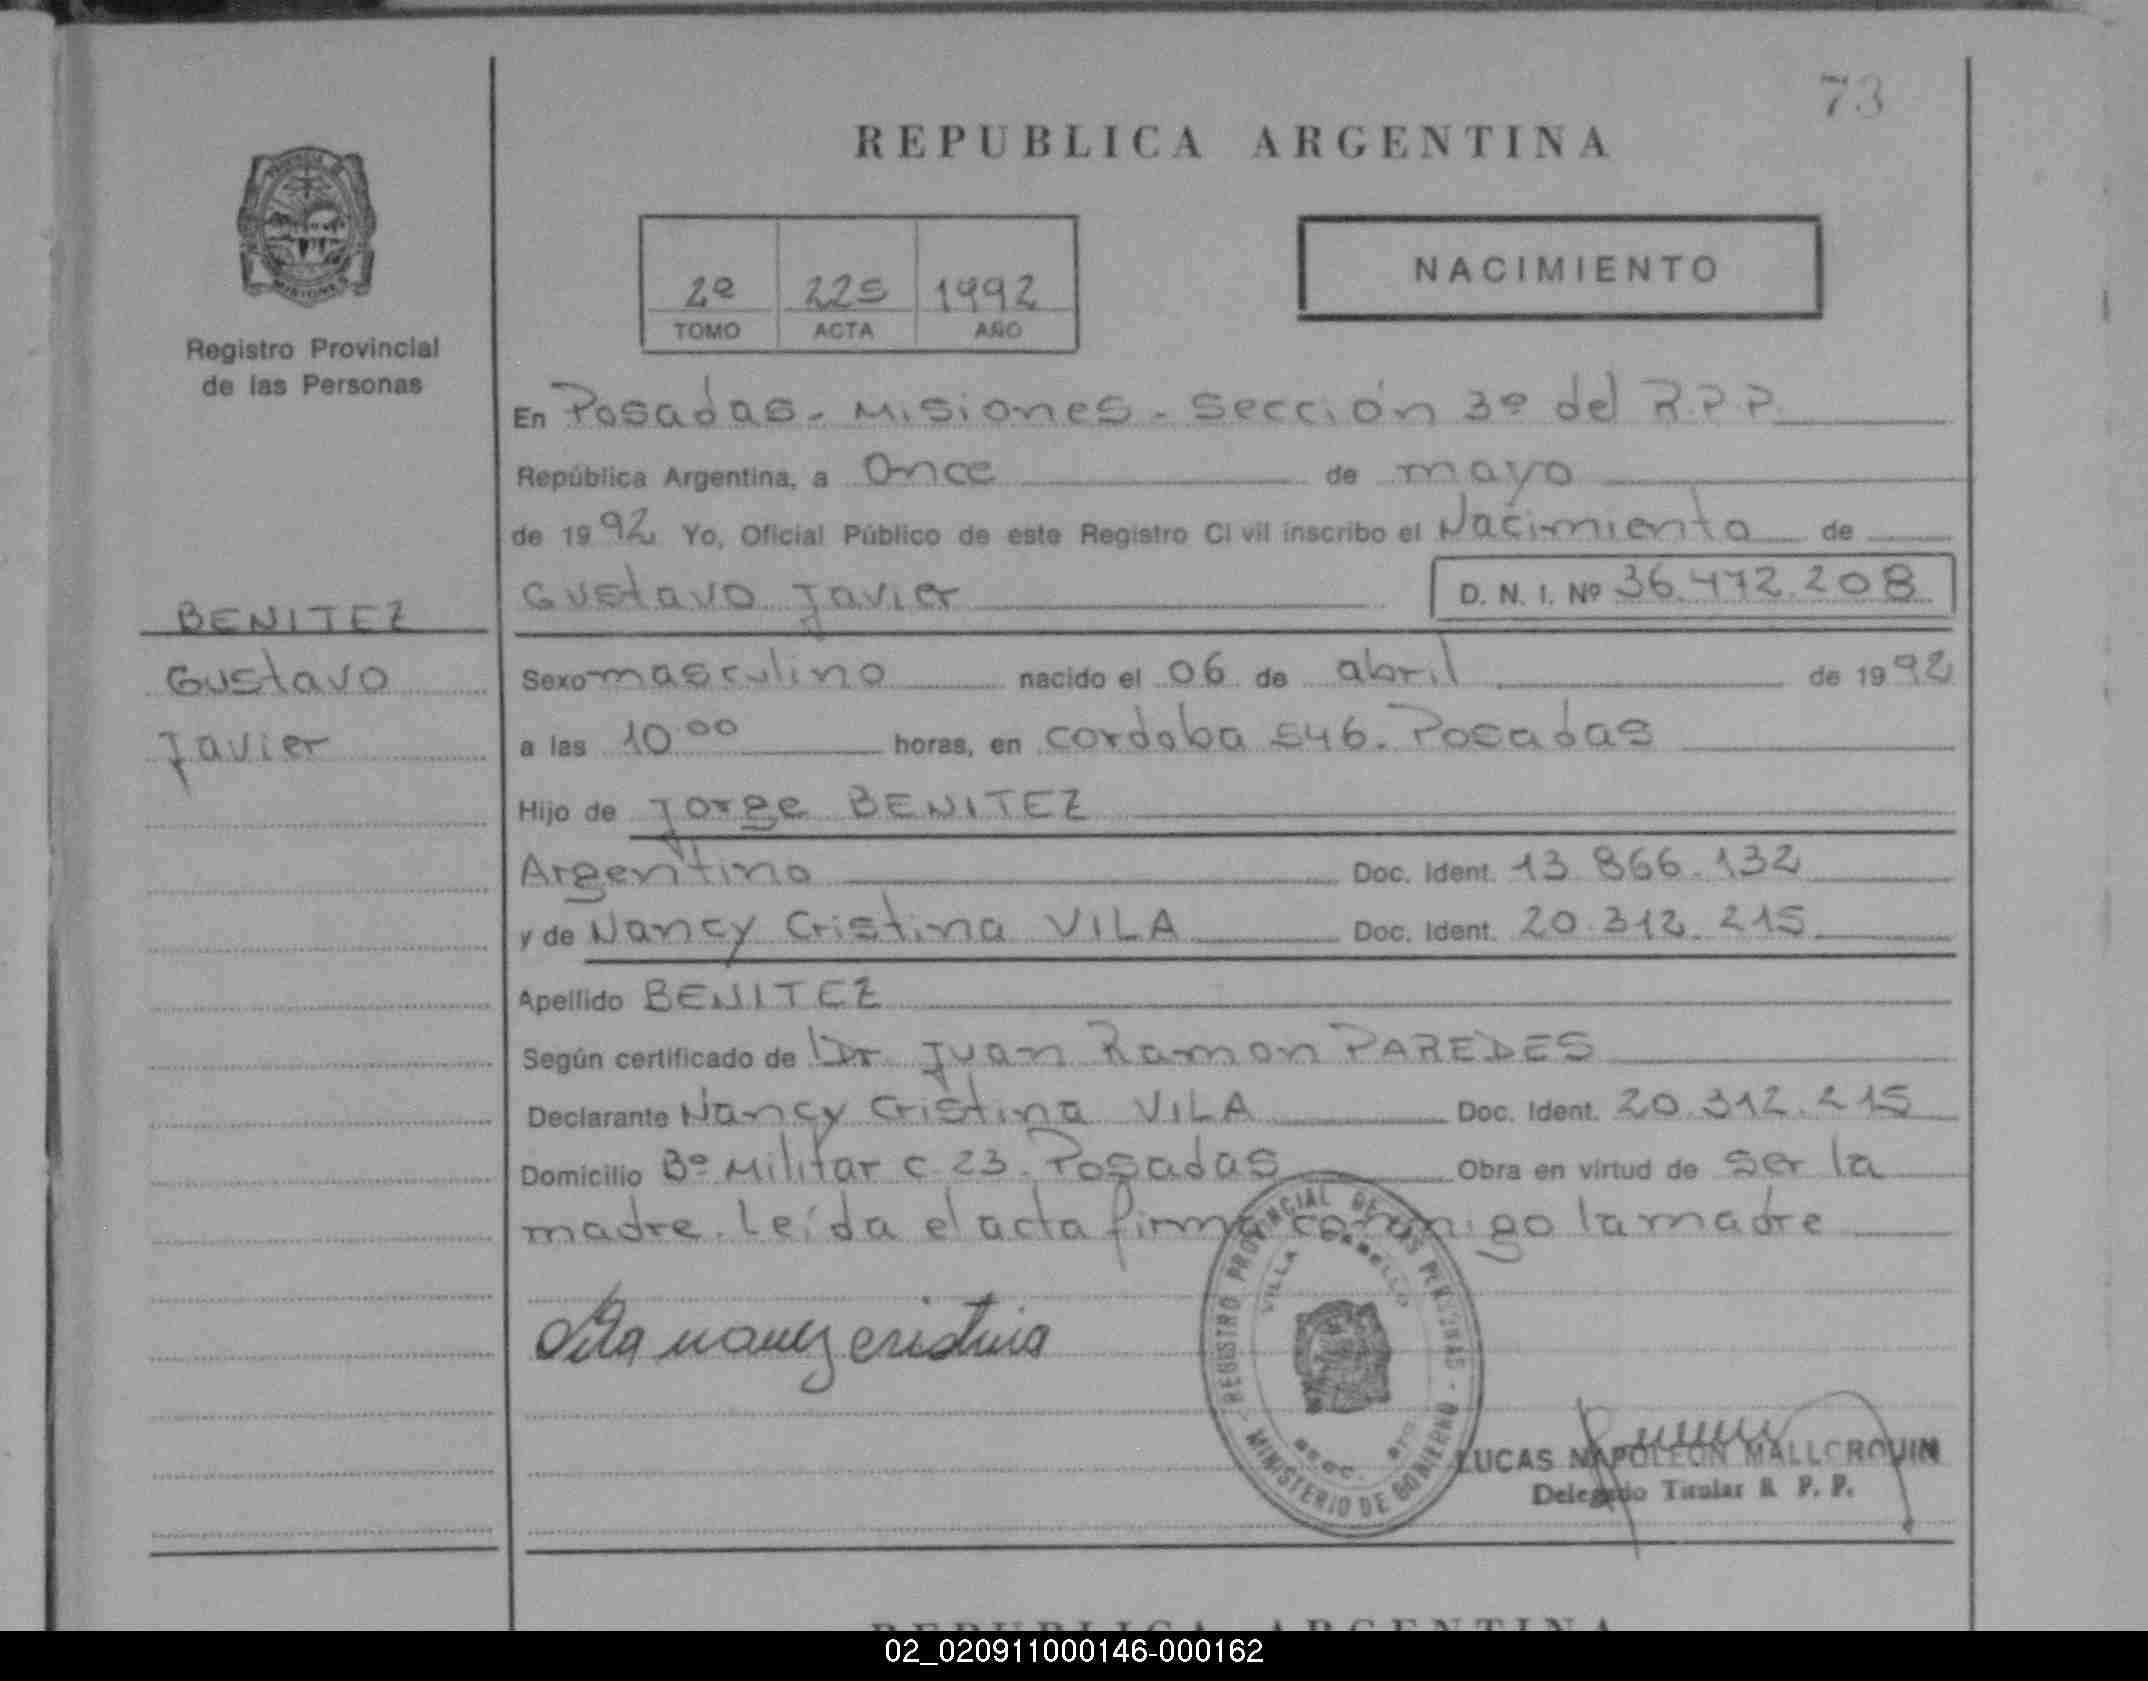 73
REPUBLICA ARGENTINA
2º 225 1992
TOMO ACTA AÑO
NACIMIENTO
Registro Provincial
de las Personas
En Posadas - Misiones - Sección 3º del R.P.P.
República Argentina, a Once de mayo
de 1992 Yo, Oficial Público de este Registro Civil inscribo el Nacimiento de
Gustavo Javier D. N. I. Nº 36.472.208
BENITEZ
Gustavo
Javier
Sexo masculino nacido el 06 de abril de 1992
a las 10.00 horas, en cordoba 546. Posadas
Hijo de Jorge BENITEZ
Argentino Doc. Ident. 13.866.132
y de Nancy Cristina VILA Doc. Ident. 20.312.215
Apellido BENITEZ
Según certificado de Dr. Juan Ramon PAREDES
Declarante Nancy Cristina VILA Doc. Ident. 20.312.215
Domicilio Bº Militar c. 23. Posadas Obra en virtud de ser la
madre. Leída el acta firma conmigo la madre
Vila nancy cristina
REGISTRO PROVINCIAL DE LAS PERSONAS - MINISTERIO DE GOBIERNO -
VILLA
LUCAS NAPOLEON MALLORQUIN
Delegado Titular R. P. P.
REPUBLICA ARGENTINA
02_020911000146-000162